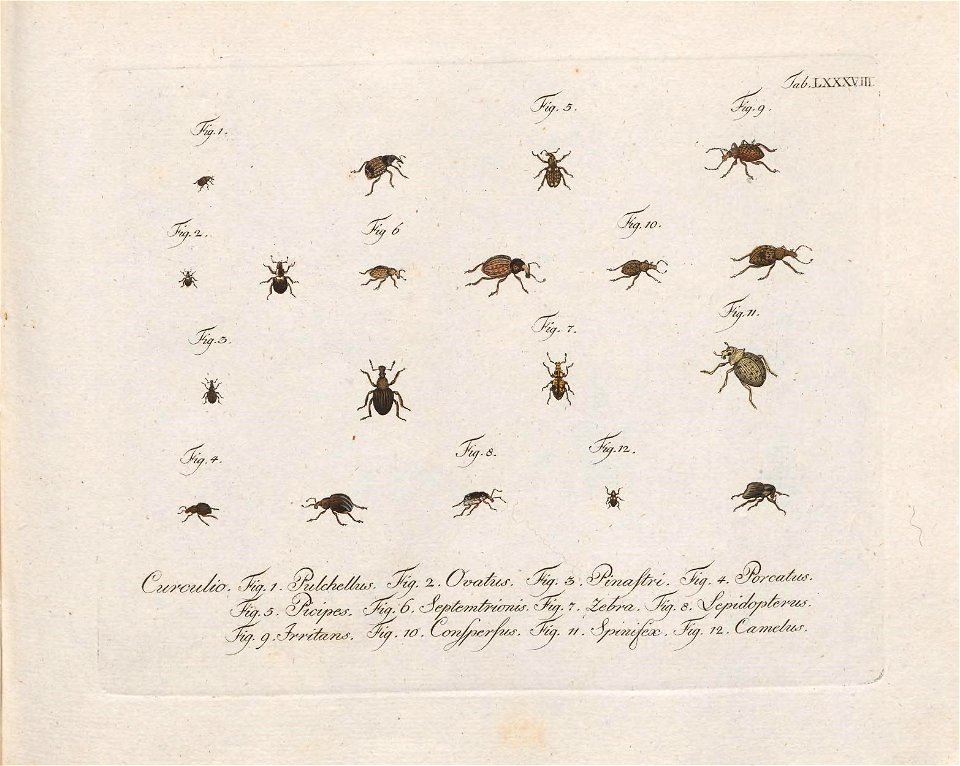 Tab. LXXXVIII.
Fig. 1.
Fig. 5.
Fig. 9.
Fig. 2.
Fig 6
Fig. 10.
Fig. 3.
Fig. 7.
Fig. 11.
Fig. 4.
Fig. 8.
Fig. 12.
Curculio. Fig. 1. Pulchellus. Fig. 2. Ovatus. Fig. 3. Pinaſtri. Fig. 4. Porcatus.
Fig. 5. Picipes. Fig. 6. Septemtrionis. Fig. 7. Zebra. Fig. 8. Lepidopterus.
Fig. 9. Irritans. Fig. 10. Conſperſus. Fig. 11. Spinifex. Fig. 12. Camelus.